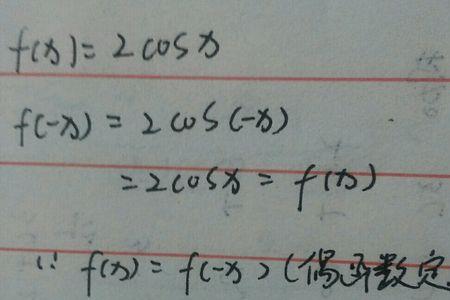 f(x)=2cosx
f(-x)=2cos(-x)
=2cosx=f(x)
∵ f(x)=f(-x)(偶函数定